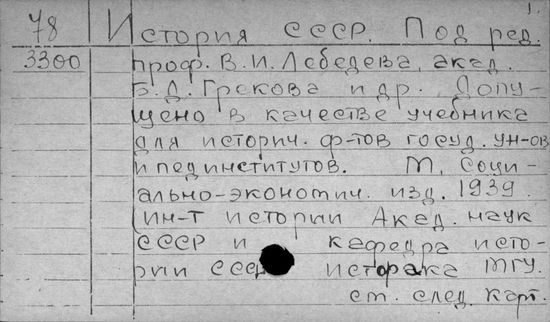 1.
78 История СССР. Под ред.
3300 проф. В.И. Лебедева, акад.
Б.Д. Грекова и др. Допу-
щено в качестве учебника
для историч. ф-тов госуд. ун-ов
и пединститутов. М. Соци-
ально-экономич. изд. 1939
(ин-т истории Акад. наук
СССР и кафедра исто-
рии СССР истфака МГУ.
см. след. карт.